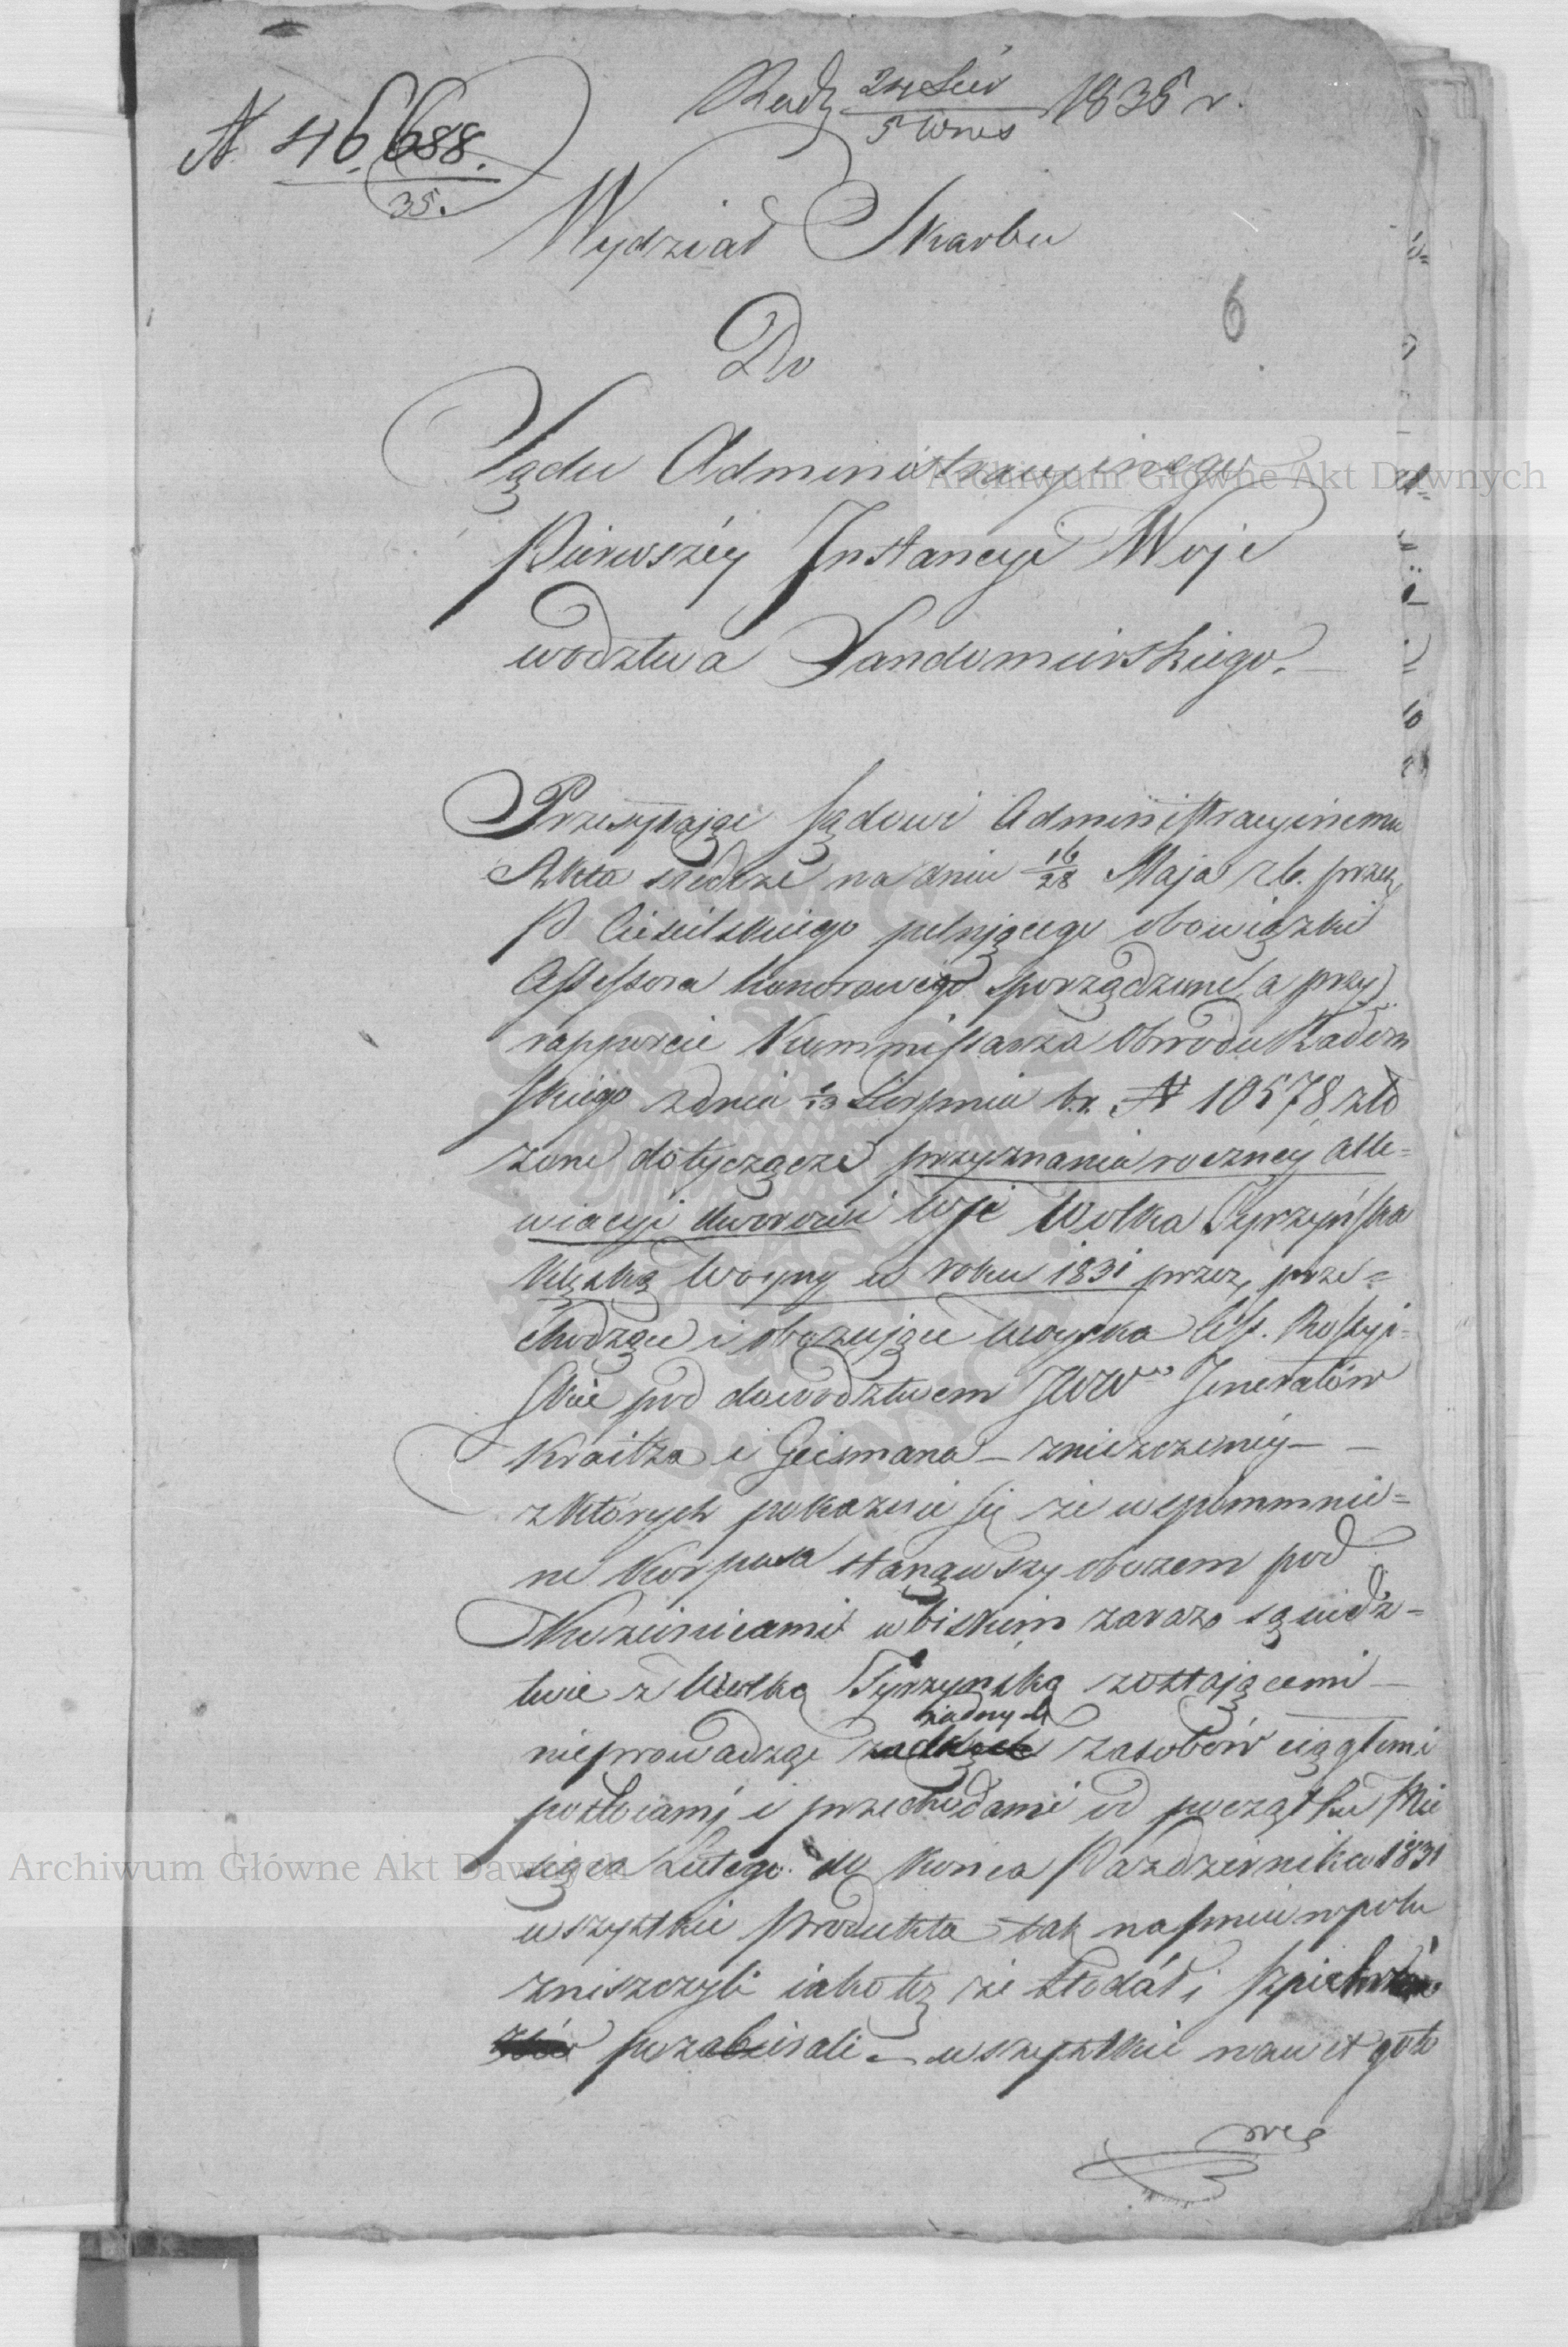 N. 46,688.
35.
Rad. 24 Sier 1835 r.
5 Wrześ
Wydział Skarbu
6
Do
Sądu Administracyinego
Pierwszéy Instancyi Woje
wodztwa Sandomirskiego.
Przesyłając Sądowi Administracyinemu
Akta śledcze na dniu 16/28 Maja r.b. przez
P. Ciesielskiego pełniącego obowiązki
Assessora honorowego sporządzone a przy
rapporcie Kommissarza Obwodu Radom
skiego z dnia 1/13 Sierpnia b.r. N 10578 zło
zone dotyczące przyznania roczney alle=
wiacyi dworowi wsi Wolka Tyrzyńska
klęską Woyny w roku 1831 przez prze=
chodzące i obozujące Woyska Ces. Rossyi=
skie pod dowodztwem JWW Jenerałów
Kraitza i Geismana — zniszczonéy —
z których pokazuie się że wspommnio=
ne Korpusa stanąwszy obozem pod
Kozienicami w bliskim zaraz sąsiedz=
twie z Wolką Tyrzyńską zostającemi —
nieprowadząc żadnych zasobów ciągłemi
postoiami i przechodami od początku Mie
siąca Lutego do konca Pazdziernika 1831
wszystkie produkta tak na pniu w polu
zniszczyli iako też ze stodół i szpichrzów
pozabierali — wszystkie nawet goto
we
Archiwum Główne Akt Dawnych
Archiwum Główne Akt Dawnych